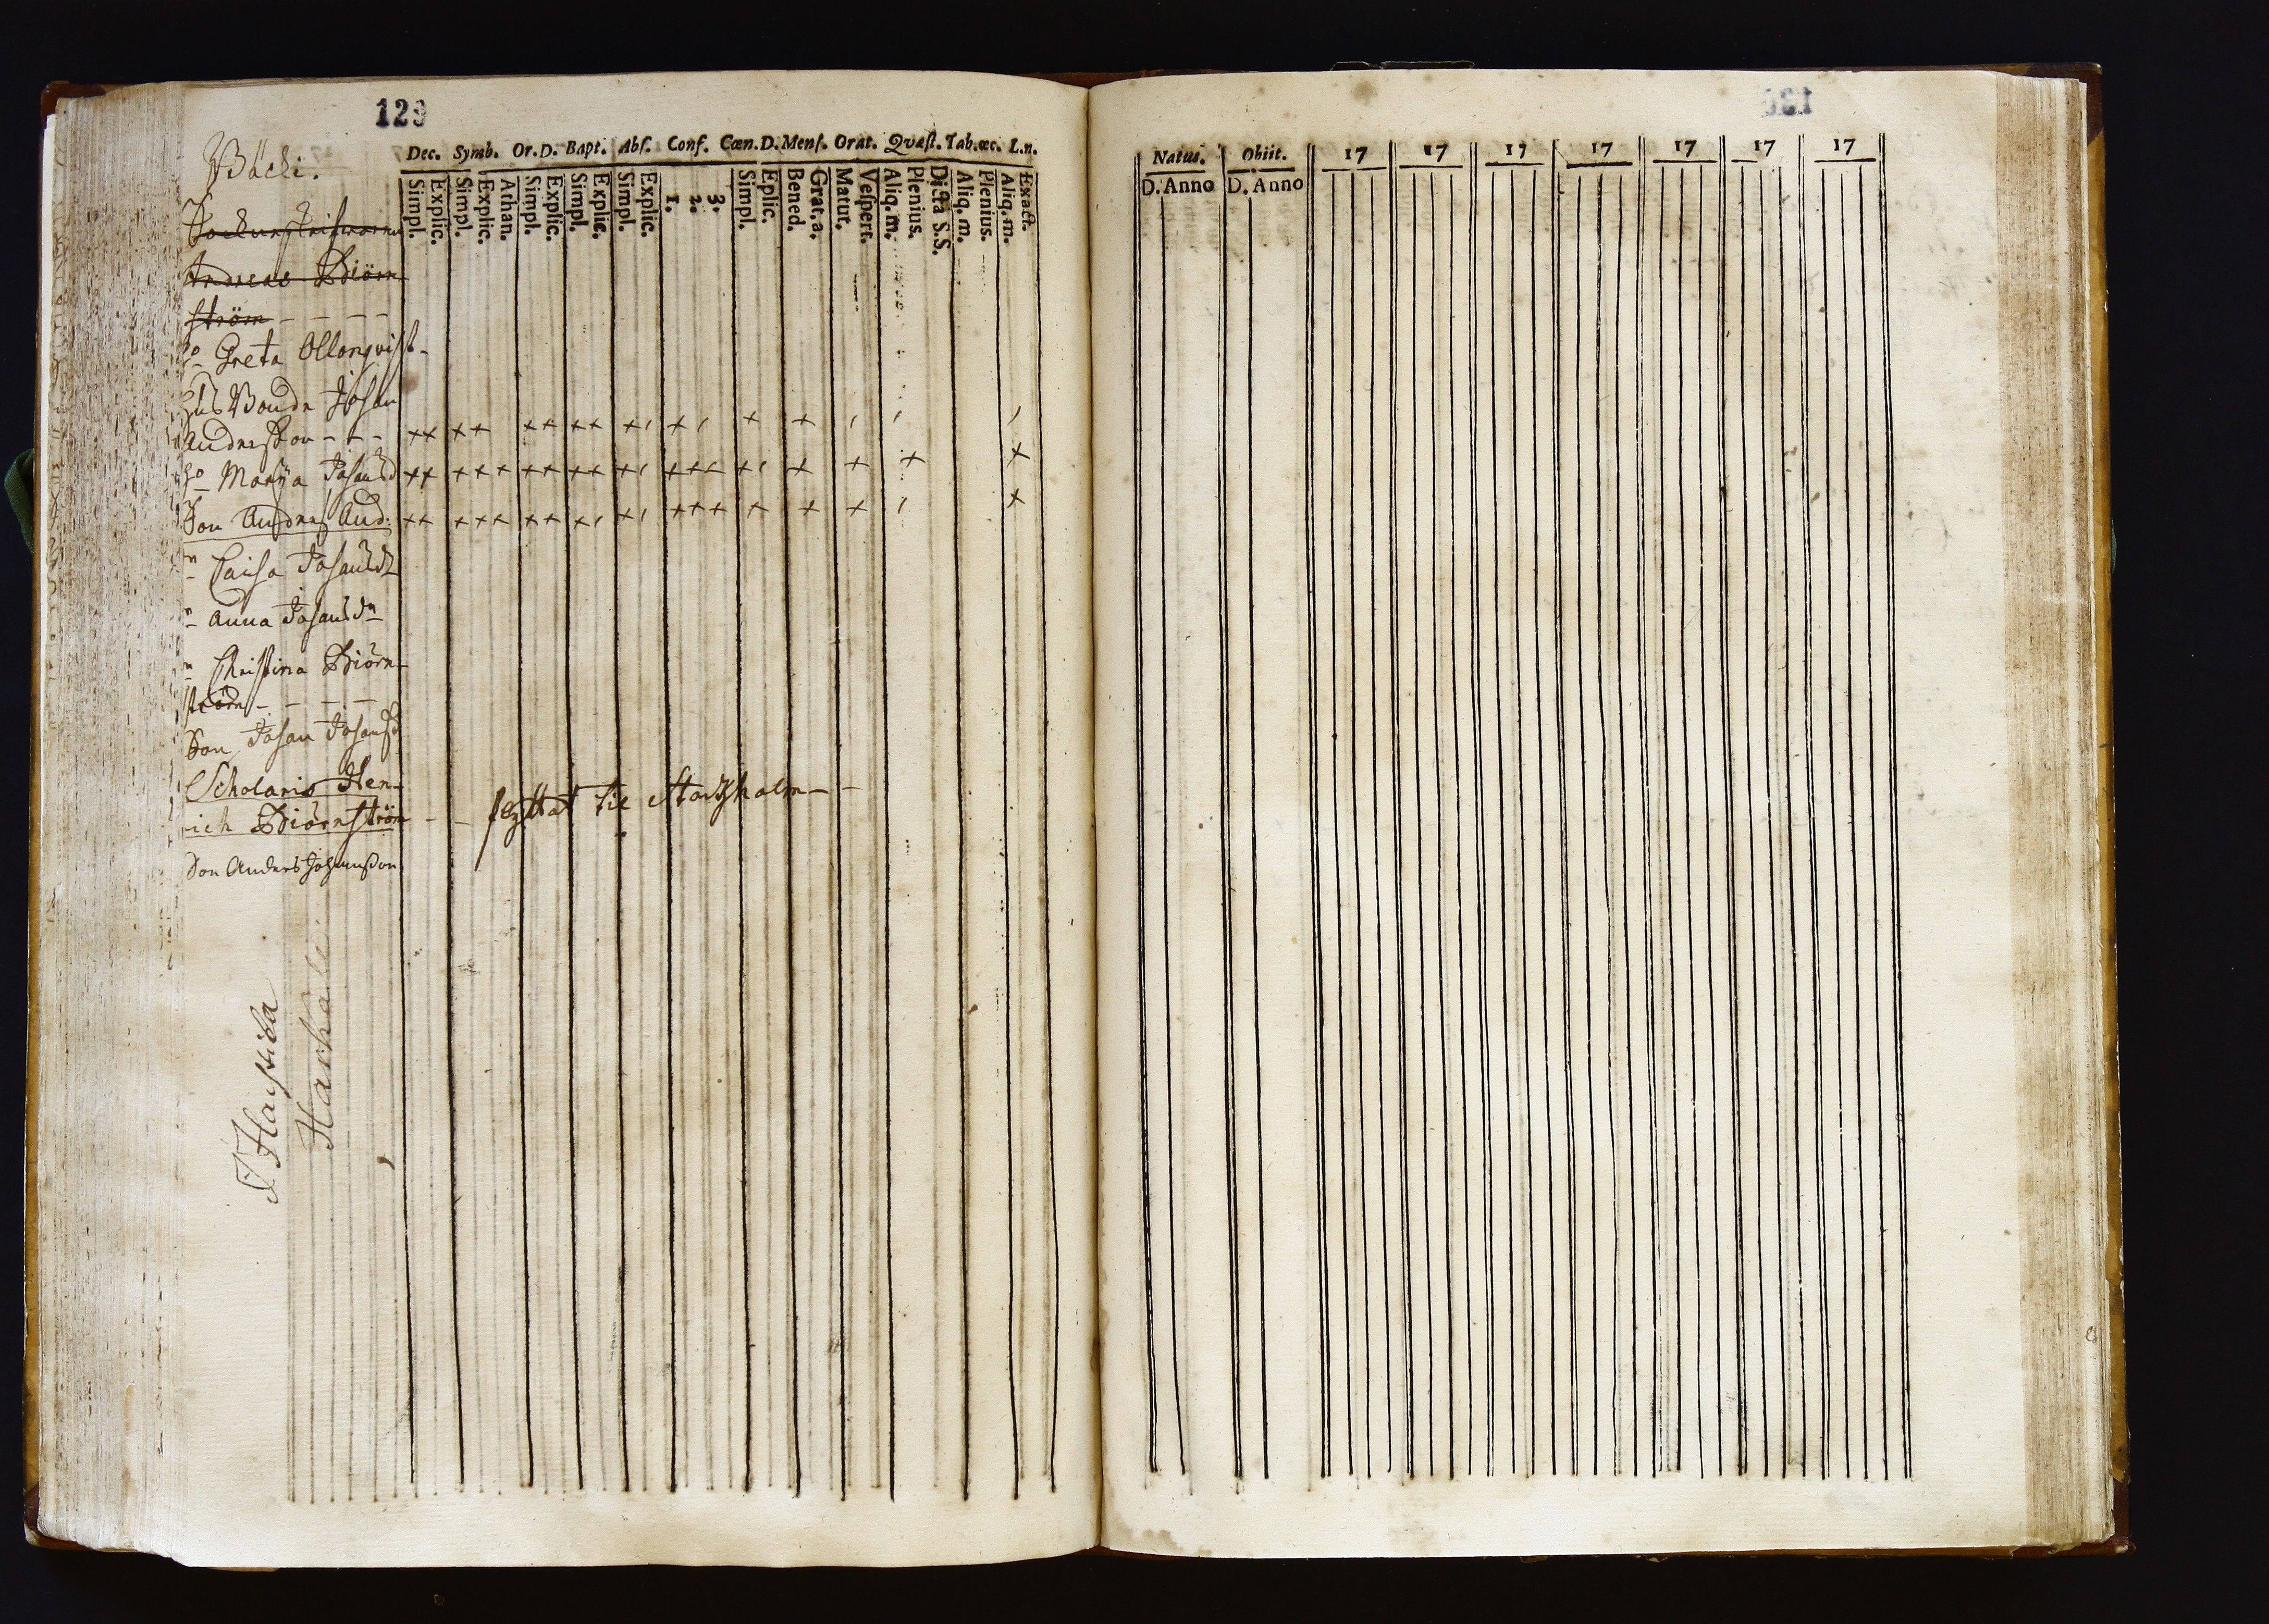 129
Bäcki.
Dec. Symb. Or.D. Bapt. Abſ. Conf. Cœn.D. Menſ. Orat. Qvæſt. Tab.œc. L.n.
Simpl. Explic. Simpl. Explic. Athan. Simpl. Explic. Simpl. Explic. Simpl. Explic. 1. 2. 3. Simpl. Eplic. Bened. Grat. a. Matut. Veſpert. Aliq. m. Plenius. Dicta S.S. Aliq. m. Plenius. Aliq. m. Exact.
Andreas Biörn
ström - - - -
ho Greta Ollonqvist
Bonde Johan
Andersson - - - ×× ×× ×× ×× ×, ×, × × , , ,
ho Marija Johansd ×× ××× ×× ×× ×, ××× ×, × × × ×
Son Anders And: ×× ××× ×× ×, ×, ××× × × × , ×
Caisa Johansdr
Anna Johansdr
Christina Biörn-
ström - - - -
Son Johan Johanss
Scholaris Hen-
rich Biörnström - - flyttat til Stockholm - -
Son Anders Johansson
Harkali
Natus. Obiit. 17 17 17 17 17 17 17
D. Anno D. Anno